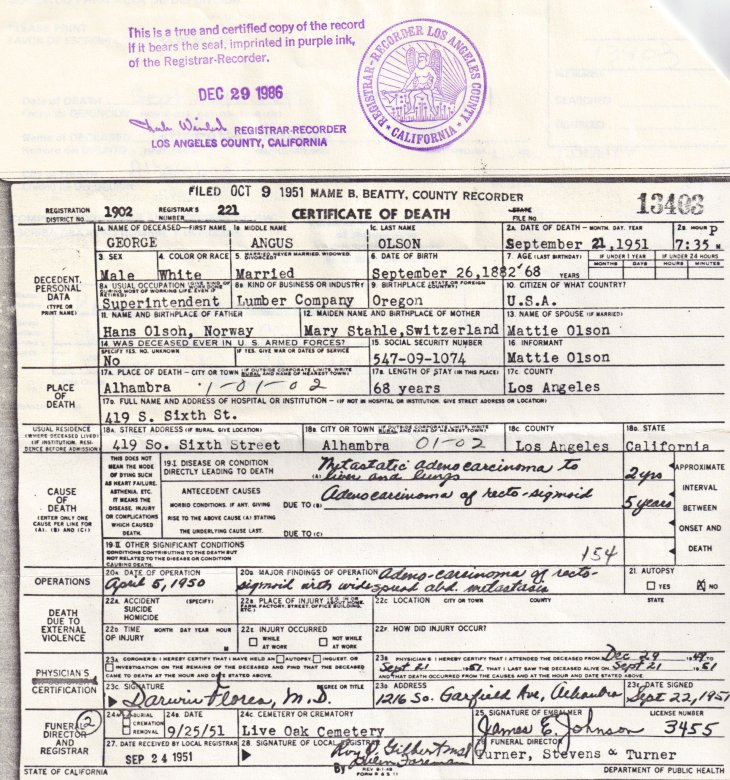 This is a true and certified copy of the record
if it bears the seal, imprinted in purple ink,
of the Registrar-Recorder.
DEC 29 1986
REGISTRAR-RECORDER
LOS ANGELES COUNTY, CALIFORNIA
REGISTRAR-RECORDER LOS ANGELES COUNTY
CALIFORNIA
FILED OCT 9 1951 MAME B. BEATTY, COUNTY RECORDER
REGISTRATION DISTRICT NO. 1902 REGISTRAR'S NUMBER 221 CERTIFICATE OF DEATH STATE FILE NO. 13403
1A. NAME OF DECEASED—FIRST NAME 1B. MIDDLE NAME 1C. LAST NAME 2A. DATE OF DEATH—MONTH, DAY, YEAR 2B. HOUR
GEORGE ANGUS OLSON September 21, 1951 7:35 P M.
3. SEX 4. COLOR OR RACE 5. MARRIED, NEVER MARRIED, WIDOWED, DIVORCED 6. DATE OF BIRTH 7. AGE (LAST BIRTHDAY) IF UNDER 1 YEAR IF UNDER 24 HOURS
Male White Married September 26, 1882 68 YEARS MONTHS DAYS HOURS MINUTES
DECEDENT PERSONAL DATA (TYPE OR PRINT NAME)
8A. USUAL OCCUPATION 8B. KIND OF BUSINESS OR INDUSTRY 9. BIRTHPLACE (STATE OR FOREIGN COUNTRY) 10. CITIZEN OF WHAT COUNTRY?
Superintendent Lumber Company Oregon U.S.A.
11. NAME AND BIRTHPLACE OF FATHER 12. MAIDEN NAME AND BIRTHPLACE OF MOTHER 13. NAME OF SPOUSE (IF MARRIED)
Hans Olson, Norway Mary Stahle, Switzerland Mattie Olson
14. WAS DECEASED EVER IN U. S. ARMED FORCES? 15. SOCIAL SECURITY NUMBER 16. INFORMANT
SPECIFY YES, NO, UNKNOWN IF YES, GIVE WAR OR DATES OF SERVICE
No 547-09-1074 Mattie Olson
PLACE OF DEATH
17A. PLACE OF DEATH—CITY OR TOWN (IF OUTSIDE CORPORATE LIMITS, WRITE RURAL AND NAME OF NEAREST TOWN) 17B. LENGTH OF STAY (IN THIS PLACE) 17C. COUNTY
Alhambra 1-01-02 68 years Los Angeles
17D. FULL NAME AND ADDRESS OF HOSPITAL OR INSTITUTION—(IF NOT IN HOSPITAL OR INSTITUTION, GIVE STREET ADDRESS OR LOCATION)
419 S. Sixth St.
USUAL RESIDENCE (WHERE DECEASED LIVED) (IF INSTITUTION, RESIDENCE BEFORE ADMISSION)
18A. STREET ADDRESS (IF RURAL GIVE LOCATION) 18B. CITY OR TOWN (IF OUTSIDE CORPORATE LIMITS, WRITE RURAL AND NAME OF NEAREST TOWN) 18C. COUNTY 18D. STATE
419 So. Sixth Street Alhambra 01-02 Los Angeles California
CAUSE OF DEATH (ENTER ONLY ONE CAUSE PER LINE FOR (A), (B) AND (C))
THIS DOES NOT MEAN THE MODE OF DYING SUCH AS HEART FAILURE, ASTHENIA, ETC. IT MEANS THE DISEASE, INJURY OR COMPLICATIONS WHICH CAUSED DEATH.
19-I. DISEASE OR CONDITION DIRECTLY LEADING TO DEATH (A) Metastatic adenocarcinoma to liver and lungs 2 yrs
ANTECEDENT CAUSES
MORBID CONDITIONS, IF ANY, GIVING RISE TO THE ABOVE CAUSE (A) STATING THE UNDERLYING CAUSE LAST.
DUE TO (B) Adenocarcinoma of recto-sigmoid 5 years
DUE TO (C)
APPROXIMATE INTERVAL BETWEEN ONSET AND DEATH
19-II. OTHER SIGNIFICANT CONDITIONS
CONDITIONS CONTRIBUTING TO THE DEATH BUT NOT RELATED TO THE DISEASE OR CONDITION CAUSING DEATH.
154
OPERATIONS
20A. DATE OF OPERATION 20B. MAJOR FINDINGS OF OPERATION 21. AUTOPSY
April 5, 1950 Adeno-carcinoma of recto-sigmoid with wide spread abd. metastasis YES X NO
DEATH DUE TO EXTERNAL VIOLENCE
22A. ACCIDENT SUICIDE HOMICIDE (SPECIFY) 22B. PLACE OF INJURY (E.G. IN OR ABOUT HOME, FARM, FACTORY, STREET, OFFICE BUILDING, ETC.) 22C. LOCATION CITY OR TOWN COUNTY STATE
22D. TIME OF INJURY MONTH DAY YEAR HOUR M 22E. INJURY OCCURRED WHILE AT WORK NOT WHILE AT WORK 22F. HOW DID INJURY OCCUR?
PHYSICIAN'S CERTIFICATION
23A. CORONER'S: I HEREBY CERTIFY THAT I HAVE HELD AN AUTOPSY, INQUEST, OR INVESTIGATION ON THE REMAINS OF THE DECEASED AND FIND THAT THE DECEASED CAME TO DEATH AT THE HOUR AND DATE STATED ABOVE.
23B. PHYSICIAN'S: I HEREBY CERTIFY THAT I ATTENDED THE DECEASED FROM Dec 29 1949 TO Sept 21 1951 THAT I LAST SAW THE DECEASED ALIVE ON Sept 21 1951 AND THAT DEATH OCCURRED FROM THE CAUSES AND AT THE HOUR AND DATE STATED ABOVE.
23C. SIGNATURE DEGREE OR TITLE 23D. ADDRESS 23E. DATE SIGNED
Darwin Flores, M.D. 1216 So. Garfield Ave, Alhambra Sept 22, 1951
FUNERAL DIRECTOR AND REGISTRAR 2
24A. BURIAL CREMATION REMOVAL 24B. DATE 24C. CEMETERY OR CREMATORY 25. SIGNATURE OF EMBALMER LICENSE NUMBER
9/25/51 Live Oak Cemetery James E. Johnson 3455
27. DATE RECEIVED BY LOCAL REGISTRAR 28. SIGNATURE OF LOCAL REGISTRAR FUNERAL DIRECTOR
SEP 24 1951 Roy O. Gilbert MD Turner, Stevens & Turner
By Foreman
STATE OF CALIFORNIA DEPARTMENT OF PUBLIC HEALTH